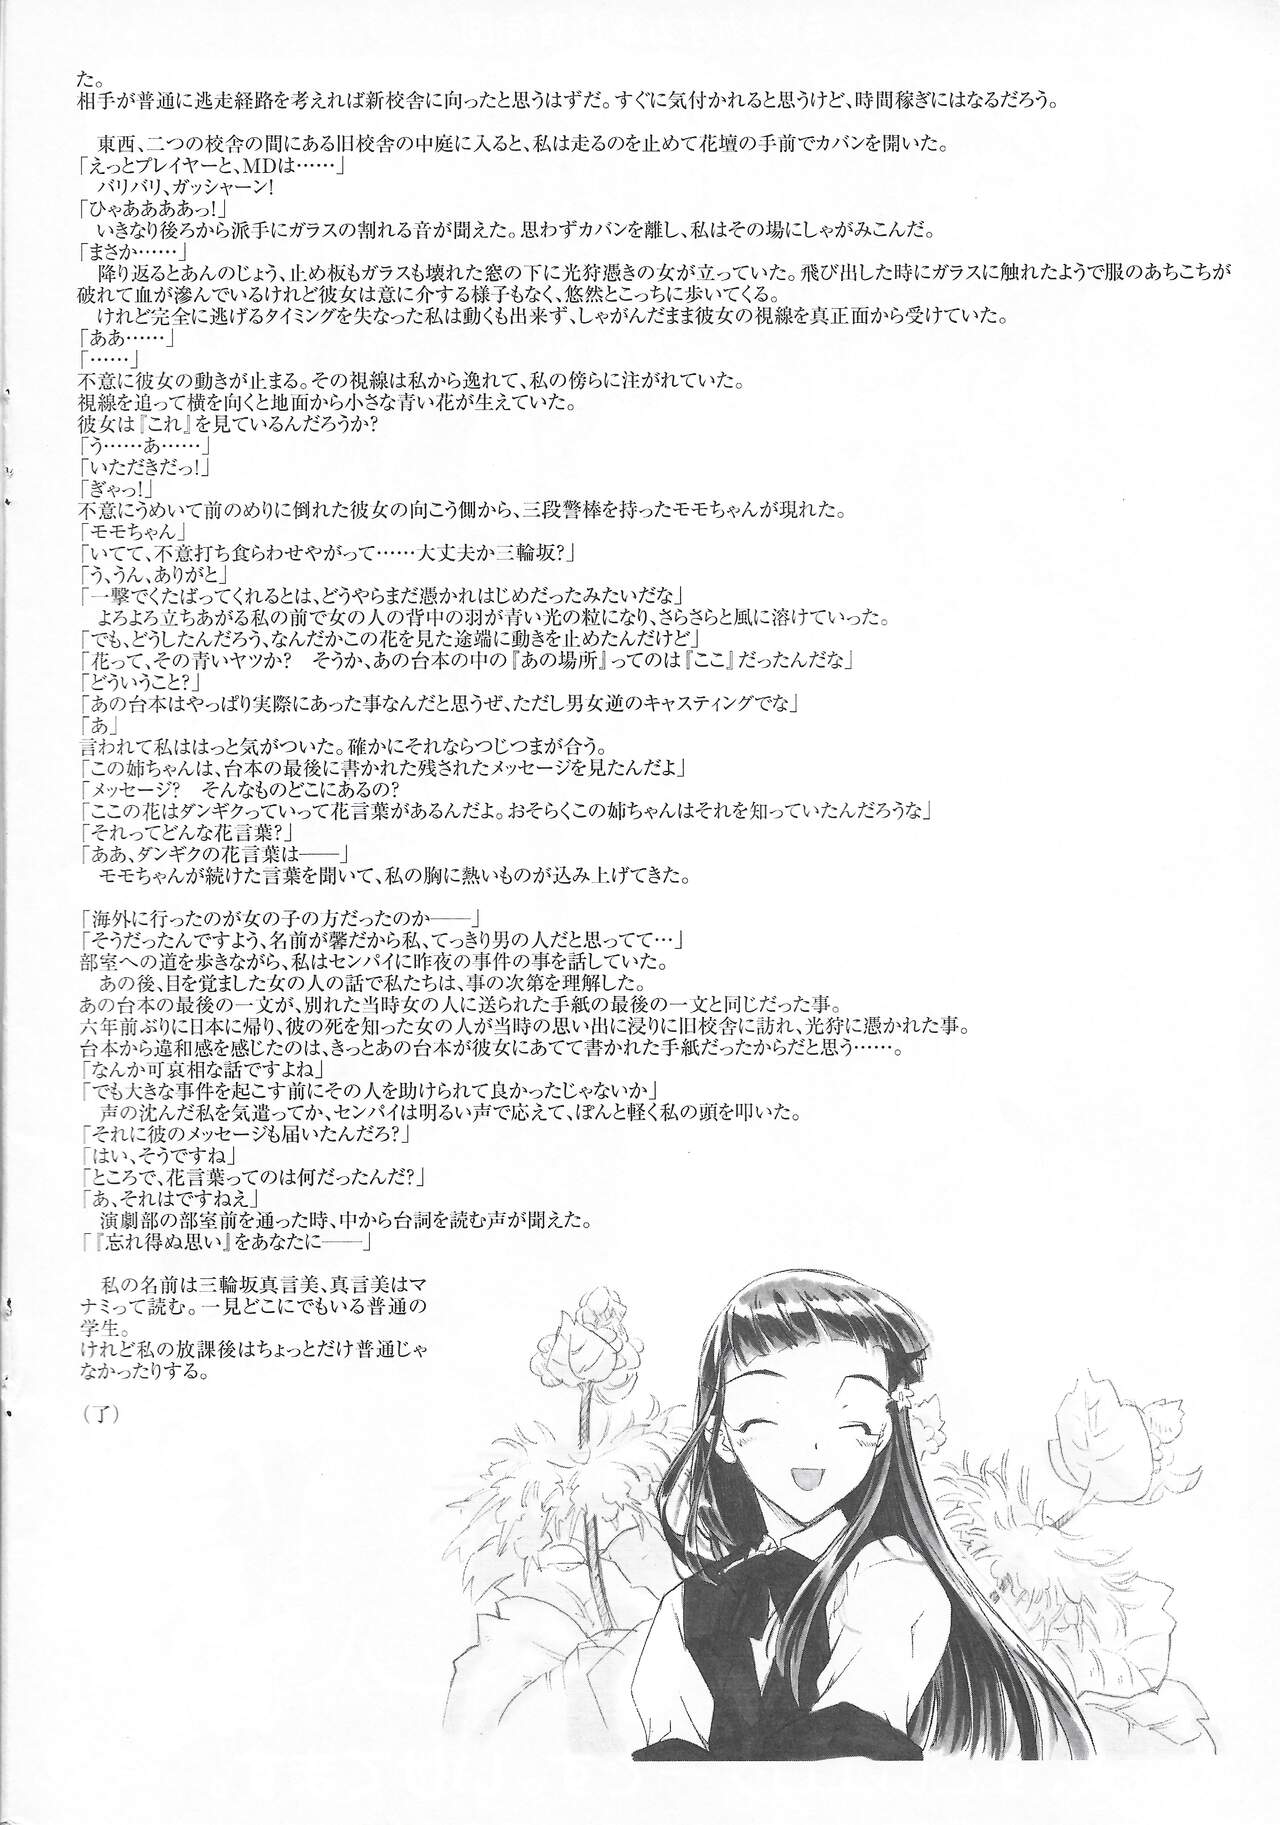 た。
相手が普通に逃走経路を考えれば新校舎に向ったと思うはずだ。すぐに気付かれると思うけど、時間稼ぎにはなるだろう。
　東西、二つの校舎の間にある旧校舎の中庭に入ると、私は走るのを止めて花壇の手前でカバンを開いた。
「えっとプレイヤーと、MDは……」
　バリバリ、ガッシャーン!
「ひゃああああっ!」
　いきなり後ろから派手にガラスの割れる音が聞えた。思わずカバンを離し、私はその場にしゃがみこんだ。
「まさか……」
　降り返るとあんのじょう、止め板もガラスも壊れた窓の下に光狩憑きの女が立っていた。飛び出した時にガラスに触れたようで服のあちこちが
破れて血が滲んでいるけれど彼女は意に介する様子もなく、悠然とこっちに歩いてくる。
　けれど完全に逃げるタイミングを失なった私は動くも出来ず、しゃがんだまま彼女の視線を真正面から受けていた。
「ああ……」
「……」
不意に彼女の動きが止まる。その視線は私から逸れて、私の傍らに注がれていた。
視線を追って横を向くと地面から小さな青い花が生えていた。
彼女は『これ』を見ているんだろうか?
「う……あ……」
「いただきだっ!」
「ぎゃっ!」
不意にうめいて前のめりに倒れた彼女の向こう側から、三段警棒を持ったモモちゃんが現れた。
「モモちゃん」
「いてて、不意打ち食らわせやがって……大丈夫か三輪坂?」
「う、うん、ありがと」
「一撃でくたばってくれるとは、どうやらまだ憑かれはじめだったみたいだな」
　よろよろ立ちあがる私の前で女の人の背中の羽が青い光の粒になり、さらさらと風に溶けていった。
「でも、どうしたんだろう、なんだかこの花を見た途端に動きを止めたんだけど」
「花って、その青いヤツか?　そうか、あの台本の中の『あの場所』ってのは『ここ』だったんだな」
「どういうこと?」
「あの台本はやっぱり実際にあった事なんだと思うぜ、ただし男女逆のキャスティングでな」
「あ」
言われて私ははっと気がついた。確かにそれならつじつまが合う。
「この姉ちゃんは、台本の最後に書かれた残されたメッセージを見たんだよ」
「メッセージ?　そんなものどこにあるの?
「ここの花はダンギクっていって花言葉があるんだよ。おそらくこの姉ちゃんはそれを知っていたんだろうな」
「それってどんな花言葉?」
「ああ、ダンギクの花言葉は――」
　モモちゃんが続けた言葉を聞いて、私の胸に熱いものが込み上げてきた。
「海外に行ったのが女の子の方だったのか――」
「そうだったんですよう、名前が馨だから私、てっきり男の人だと思ってて…」
部室への道を歩きながら、私はセンパイに昨夜の事件の事を話していた。
　あの後、目を覚ました女の人の話で私たちは、事の次第を理解した。
あの台本の最後の一文が、別れた当時女の人に送られた手紙の最後の一文と同じだった事。
六年前ぶりに日本に帰り、彼の死を知った女の人が当時の思い出に浸りに旧校舎に訪れ、光狩に憑かれた事。
台本から違和感を感じたのは、きっとあの台本が彼女にあてて書かれた手紙だったからだと思う……。
「なんか可哀相な話ですよね」
「でも大きな事件を起こす前にその人を助けられて良かったじゃないか」
　声の沈んだ私を気遣ってか、センパイは明るい声で応えて、ぽんと軽く私の頭を叩いた。
「それに彼のメッセージも届いたんだろ?」
「はい、そうですね」
「ところで、花言葉ってのは何だったんだ?」
「あ、それはですねえ」
　演劇部の部室前を通った時、中から台詞を読む声が聞えた。
「『忘れ得ぬ思い』をあなたに――」
　私の名前は三輪坂真言美、真言美はマ
ナミって読む。一見どこにでもいる普通の
学生。
けれど私の放課後はちょっとだけ普通じゃ
なかったりする。
（了）